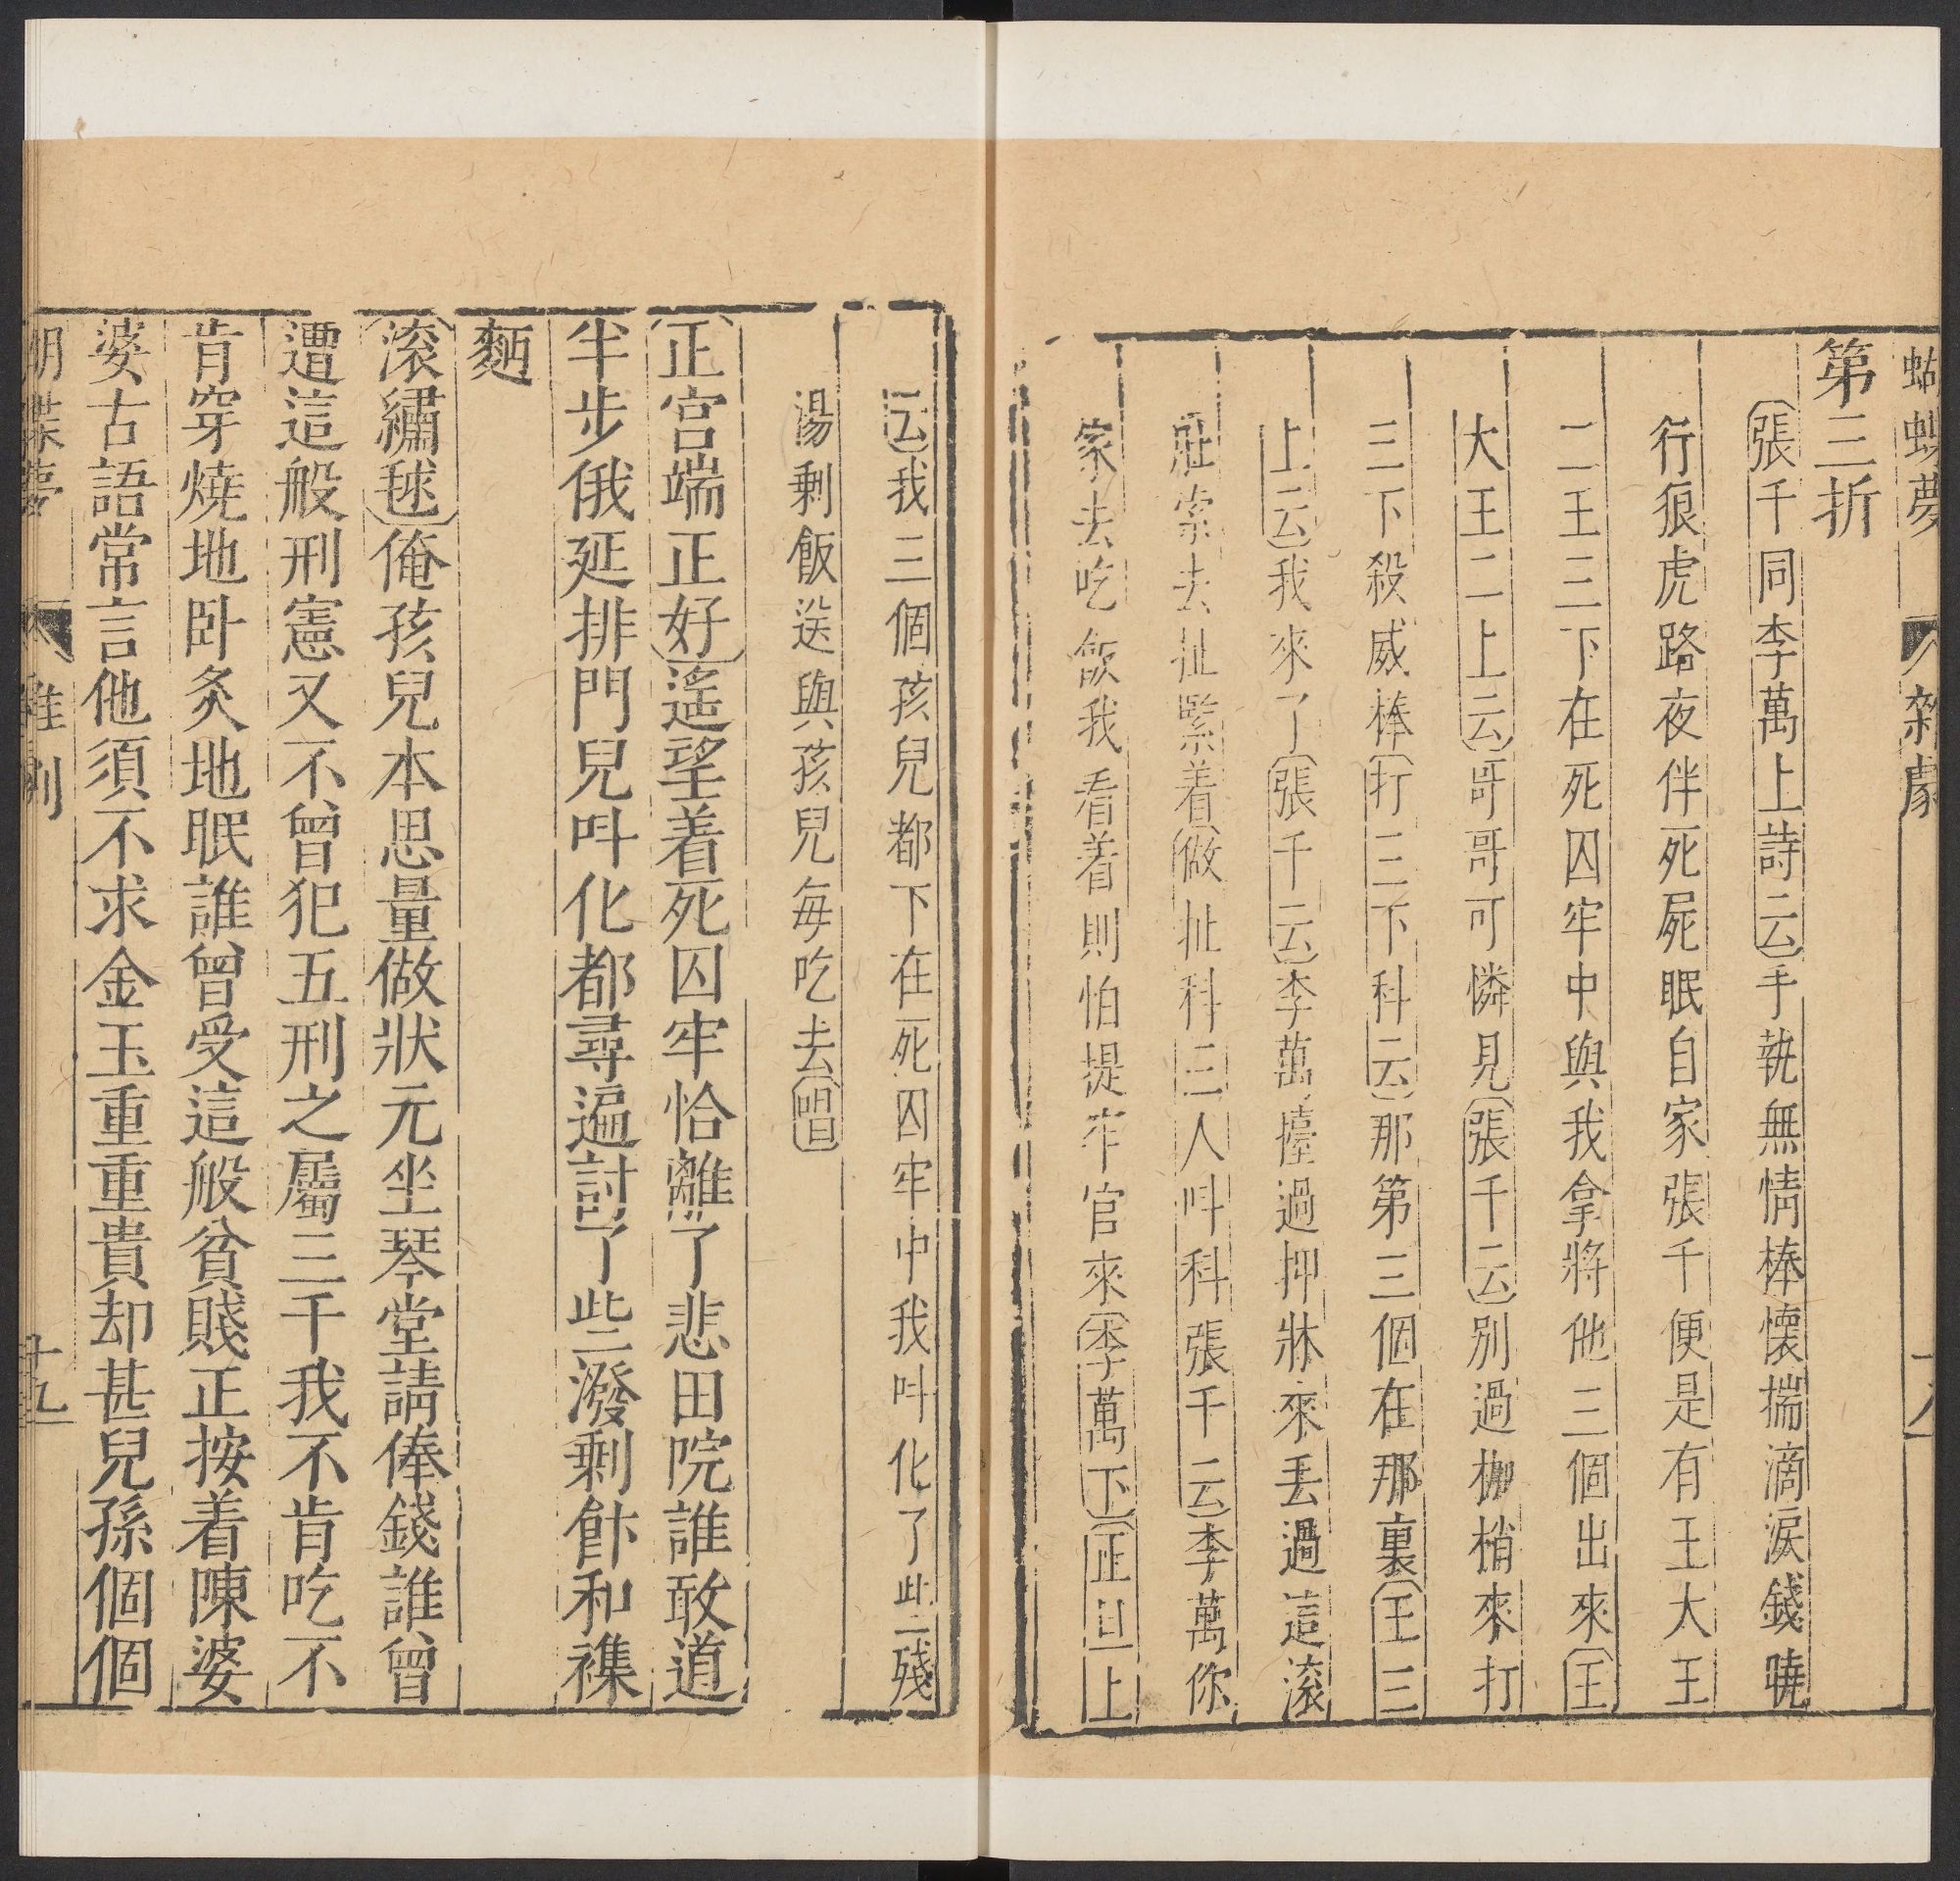 蝴蝶夢 雜劇 十八
第三折
張千同李萬上詩云手執無情棒懷揣滴淚錢曉
行狼虎路夜伴死屍眠自家張千便是有王大王
二王三下在死囚牢中與我拿將他三個出來王
大王二上云哥哥可憐見張千云別過枷梢來打
三下殺威棒打三下科云那第三個在那裏王三
上云我來了張千云李萬擡過押牀來丟過這滾
肚索去扯緊着做扯科三人呌科張千云李萬你
家去吃飯我看着則怕提牢官來李萬下正旦上
云我三個孩兒都下在死囚牢中我呌化了些殘
湯剩飯送與孩兒每吃去唱
正宮端正好遥望着死囚牢恰離了悲田院誰敢道
半步俄延排門兒呌化都尋遍討了些潑剩飰和襍
麪
滚繡毬俺孩兒本思量做狀元坐琴堂請俸錢誰曾
遭這般刑憲又不曾犯五刑之屬三千我不肯吃不
肯穿燒地卧炙地眠誰曾受這般貧賤正按着陳婆
婆古語常言他須不求金玉重重貴却甚兒孫個個
胡蝶夢 雜劇 十九